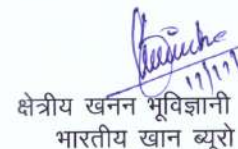 क्षेत्रीय खनन भूविज्ञानी
भारतीय खान ब्यूरो